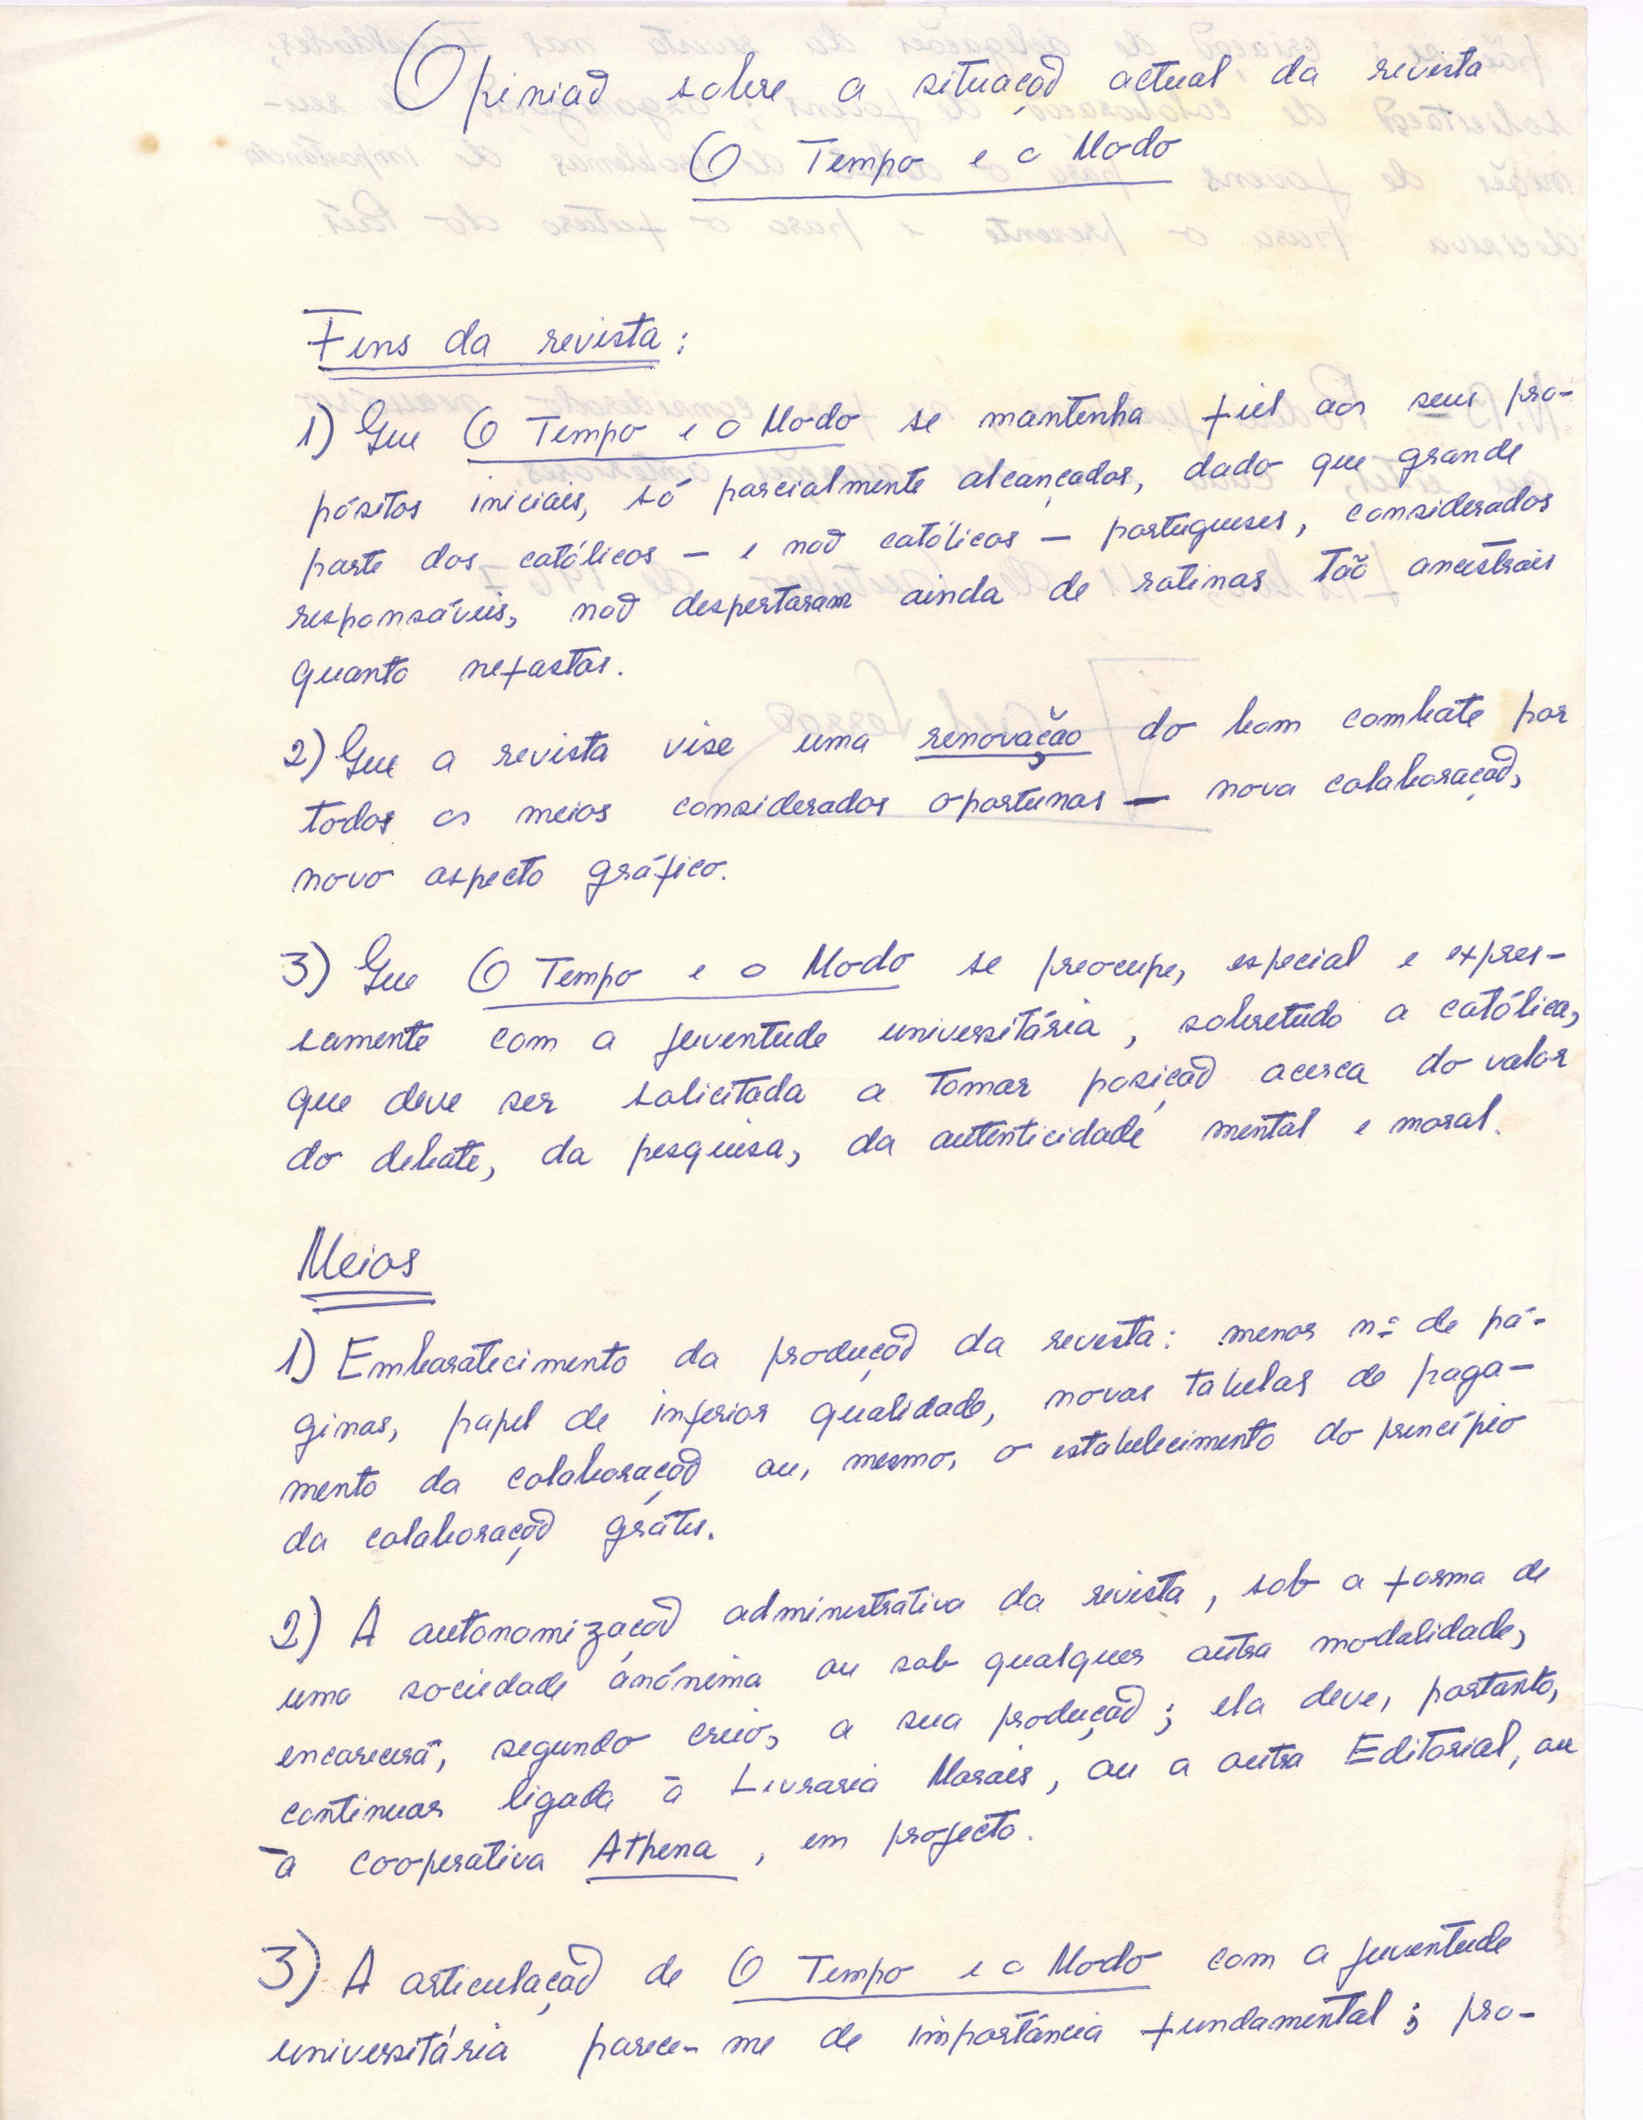 Opinião sobre a situação actual da revista
O Tempo e o Modo
Fins da revista:
1) Que O Tempo e o Modo se mantenha fiel aos seus pro-
pósitos iniciais, só parcialmente alcançados, dado que grande
parte dos católicos — e não católicos — portugueses, considerados
responsáveis, não despertaram ainda de rotinas tão ancestrais
quanto nefastas.
2) Que a revista vise uma renovação do bom combate por
todos os meios considerados oportunos — nova colaboração,
novo aspecto gráfico.
3) Que O Tempo e o Modo se preocupe, especial e expres-
samente com a juventude universitária, sobretudo a católica,
que deve ser solicitada a tomar posição acerca do valor
do debate, da pesquisa, da autenticidade mental e moral.
Meios
1) Embaratecimento da produção da revista: menor nº de pá-
ginas, papel de inferior qualidade, novas tabelas de paga-
mento da colaboração ou, mesmo, o estabelecimento do princípio
da colaboração grátis.
2) A autonomização administrativa da revista, sob a forma de
uma sociedade anónima ou sob qualquer outra modalidade,
encarecerá, segundo creio, a sua produção; ela deve, portanto,
continuar ligada à Livraria Morais, ou a outra Editorial, ou
à cooperativa Athena, em projecto.
3) A articulação de O Tempo e o Modo com a juventude
universitária parece-me de importância fundamental; pro-